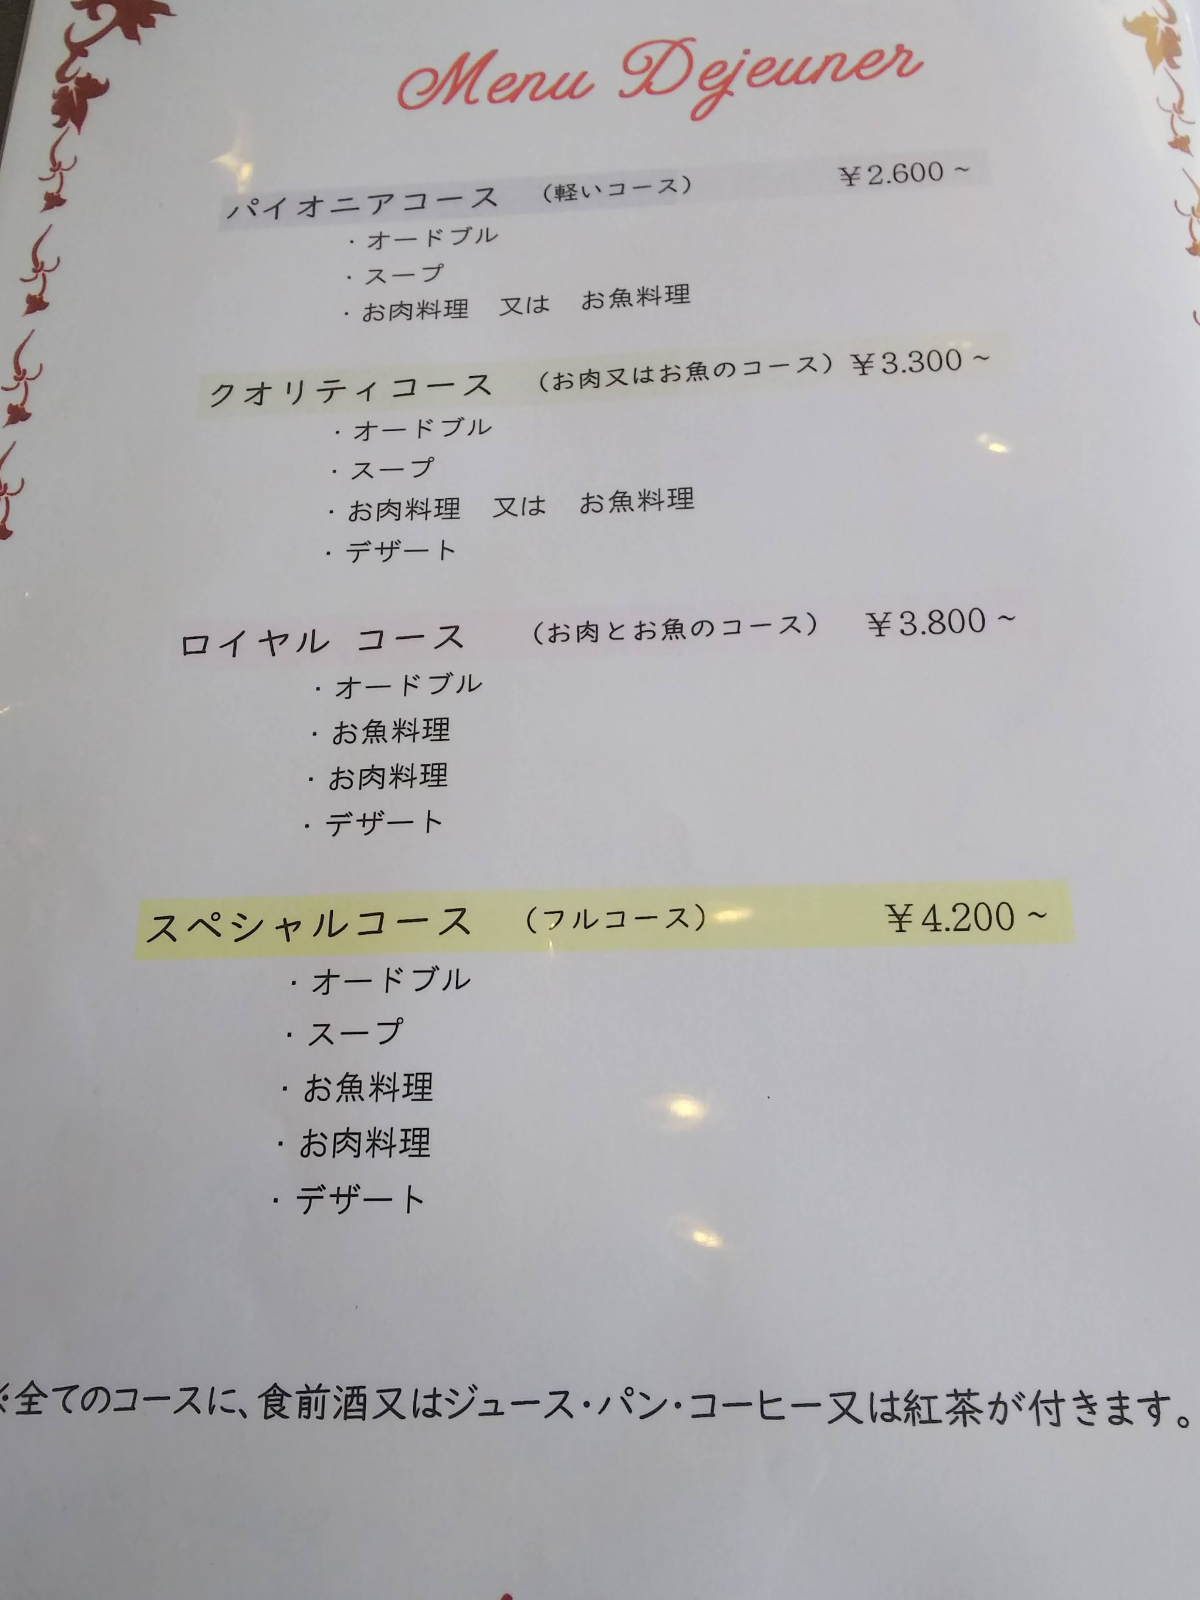 Menu Dejeuner
パイオニアコース （軽いコース） ￥2.600～
・オードブル
・スープ
・お肉料理 又は お魚料理
クオリティコース （お肉又はお魚のコース）￥3.300～
・オードブル
・スープ
・お肉料理 又は お魚料理
・デザート
ロイヤル コース （お肉とお魚のコース） ￥3.800～
・オードブル
・お魚料理
・お肉料理
・デザート
スペシャルコース （フルコース） ￥4.200～
・オードブル
・スープ
・お魚料理
・お肉料理
・デザート
※全てのコースに、食前酒又はジュース・パン・コーヒー又は紅茶が付きます。